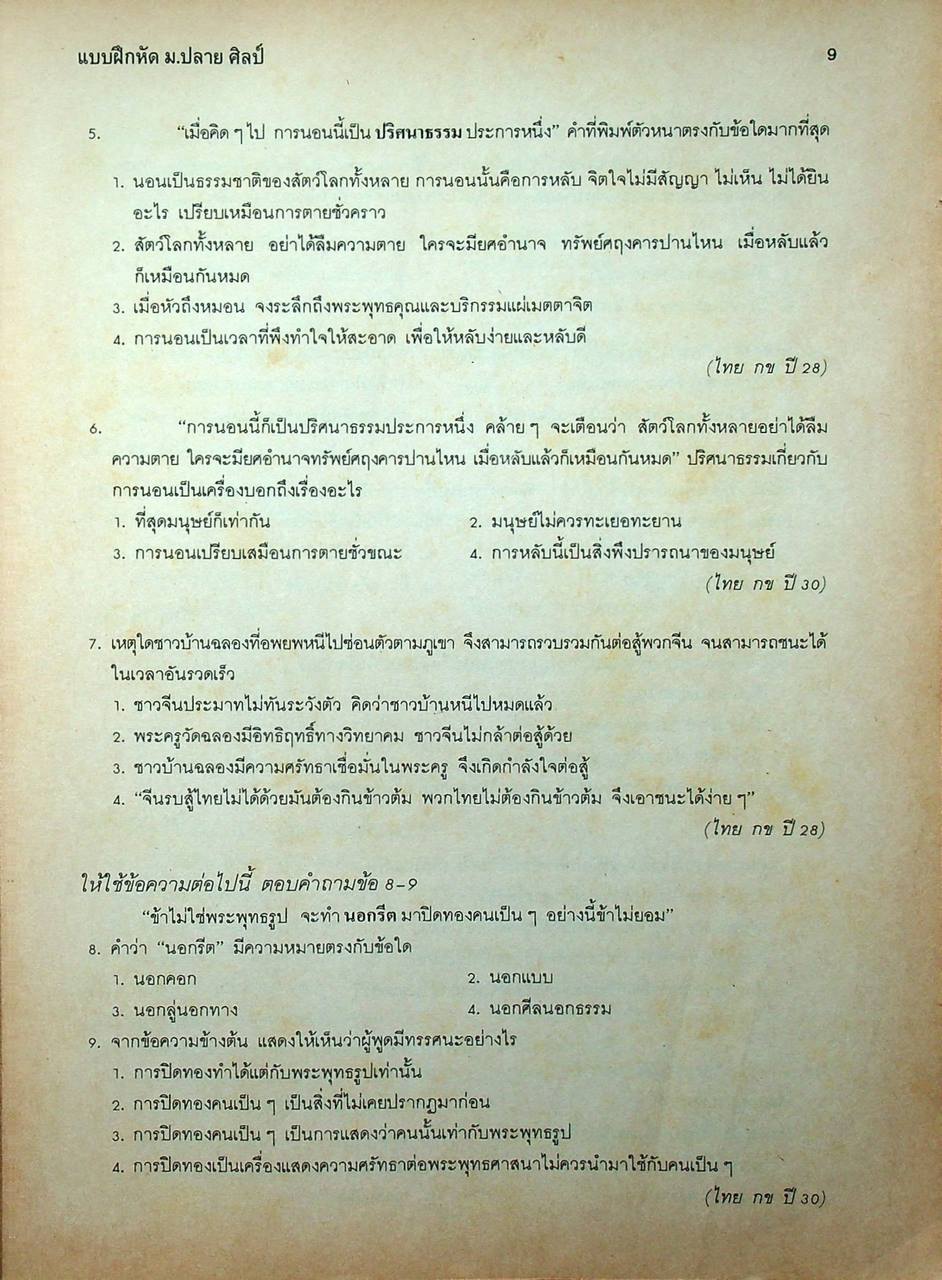 แบบฝึกหัด ม.ปลาย ศิลป์ 9
5. "เมื่อคิด ๆ ไป การนอนนี้เป็น ปริศนาธรรม ประการหนึ่ง" คำที่พิมพ์ตัวหนาตรงกับข้อใดมากที่สุด
1. นอนเป็นธรรมชาติของสัตว์โลกทั้งหลาย การนอนนั้นคือการหลับ จิตใจไม่มีสัญญา ไม่เห็น ไม่ได้ยิน
อะไร เปรียบเหมือนการตายชั่วคราว
2. สัตว์โลกทั้งหลาย อย่าได้ลืมความตาย ใครจะมียศอำนาจ ทรัพย์ศฤงคารปานไหน เมื่อหลับแล้ว
ก็เหมือนกันหมด
3. เมื่อหัวถึงหมอน จงระลึกถึงพระพุทธคุณและบริกรรมแผ่เมตตาจิต
4. การนอนเป็นเวลาที่พึงทำใจให้สะอาด เพื่อให้หลับง่ายและหลับดี
(ไทย กข ปี 28)
6. "การนอนนี้ก็เป็นปริศนาธรรมประการหนึ่ง คล้าย ๆ จะเตือนว่า สัตว์โลกทั้งหลายอย่าได้ลืม
ความตาย ใครจะมียศอำนาจทรัพย์ศฤงคารปานไหน เมื่อหลับแล้วก็เหมือนกันหมด" ปริศนาธรรมเกี่ยวกับ
การนอนเป็นเครื่องบอกถึงเรื่องอะไร
1. ที่สุดมนุษย์ก็เท่ากัน 2. มนุษย์ไม่ควรทะเยอทะยาน
3. การนอนเปรียบเสมือนการตายชั่วขณะ 4. การหลับนี้เป็นสิ่งพึงปรารถนาของมนุษย์
(ไทย กข ปี 30)
7. เหตุใดชาวบ้านฉลองที่อพยพหนีไปซ่อนตัวตามภูเขา จึงสามารถรวบรวมกันต่อสู้พวกจีน จนสามารถชนะได้
ในเวลาอันรวดเร็ว
1. ชาวจีนประมาทไม่ทันระวังตัว คิดว่าชาวบ้านหนีไปหมดแล้ว
2. พระครูวัดฉลองมีอิทธิฤทธิ์ทางวิทยาคม ชาวจีนไม่กล้าต่อสู้ด้วย
3. ชาวบ้านฉลองมีความศรัทธาเชื่อมั่นในพระครู จึงเกิดกำลังใจต่อสู้
4. "จีนรบสู้ไทยไม่ได้ด้วยมันต้องกินข้าวต้ม พวกไทยไม่ต้องกินข้าวต้ม จึงเอาชนะได้ง่าย ๆ"
(ไทย กข ปี 28)
ให้ใช้ข้อความต่อไปนี้ ตอบคำถามข้อ 8-9
"ข้าไม่ใช่พระพุทธรูป จะทำ นอกรีต มาปิดทองคนเป็น ๆ อย่างนี้ข้าไม่ยอม"
8. คำว่า "นอกรีต" มีความหมายตรงกับข้อใด
1. นอกคอก 2. นอกแบบ
3. นอกลู่นอกทาง 4. นอกศีลนอกธรรม
9. จากข้อความข้างต้น แสดงให้เห็นว่าผู้พูดมีทรรศนะอย่างไร
1. การปิดทองทำได้แต่กับพระพุทธรูปเท่านั้น
2. การปิดทองคนเป็น ๆ เป็นสิ่งที่ไม่เคยปรากฏมาก่อน
3. การปิดทองคนเป็น ๆ เป็นการแสดงว่าคนนั้นเท่ากับพระพุทธรูป
4. การปิดทองเป็นเครื่องแสดงความศรัทธาต่อพระพุทธศาสนาไม่ควรนำมาใช้กับคนเป็น ๆ
(ไทย กข ปี 30)